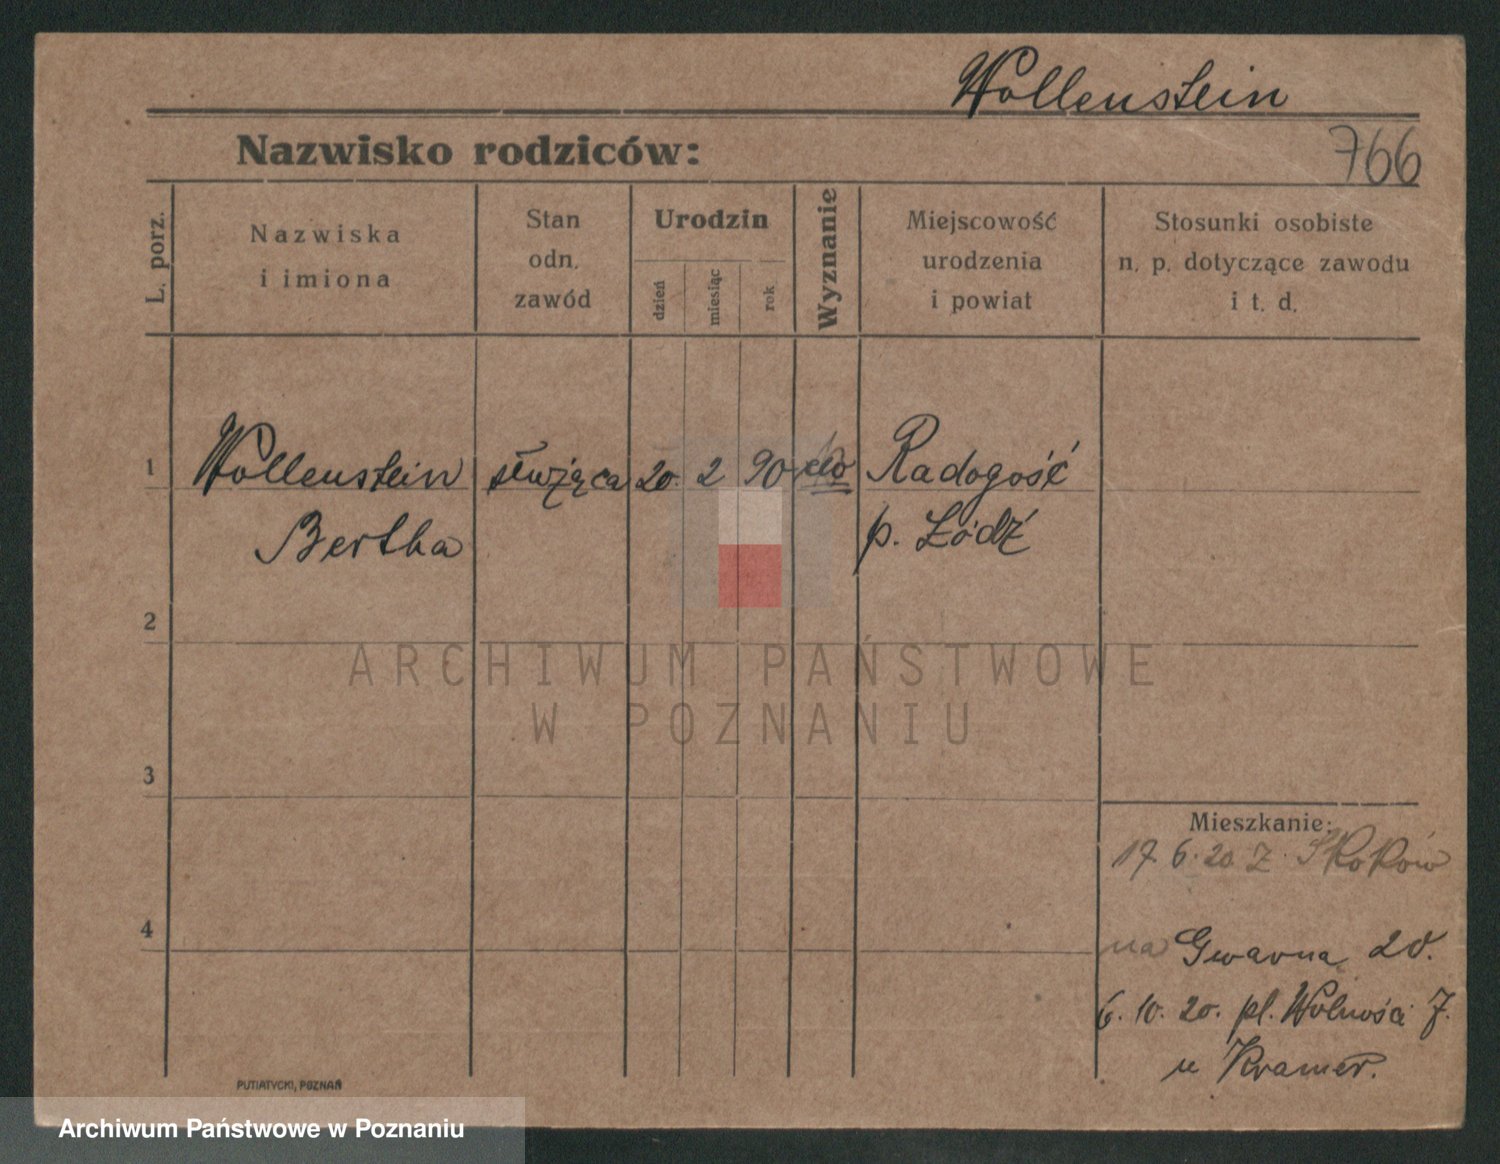 Wollenstein
Nazwisko rodziców:
766
L. porz.
Nazwiska
i imiona
Stan
odn.
zawód
Urodzin
dzień
miesiąc
rok
Wyznanie
Miejscowość
urodzenia
i powiat
Stosunki osobiste
n. p. dotyczące zawodu
i t. d.
1
Wollenstein służąca 20. 2 90 Radogość
Bertha p. Łódź
2
ARCHIWUM PAŃSTWOWE
W POZNANIU
3
Mieszkanie:
17 6. 20 Z Skoków
4
na Gwarną 20.
6. 10. 20. pl. Wolności 7.
u Kramer.
PUTIATYCKI, POZNAŃ
Archiwum Państwowe w Poznaniu